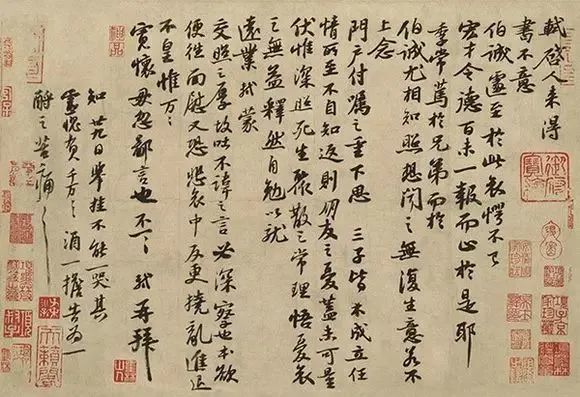 軾啓人來得
書不意
伯誠遽至於此哀愕不已
宏才令德百未一報而止於是耶
季常篤於兄弟而於
伯誠尤相知照想聞之無復生意若不
上念
門户付囑之重下思三子皆未成立任
情所至不自知返則朋友之憂蓋未可量
伏惟深照死生聚散之常理悟憂哀
之無益釋然自勉以就
遠業軾蒙
交照之厚故吐不諱之言必深察也本欲
便往面慰又恐悲哀中反更撓亂進退
不皇惟萬〻
寬懷毋忽鄙言也不一〻軾再拜
知廿九日舉挂不能一哭其
靈愧負千萬〻〻酒一擔告爲一
酹之苦痛〻〻